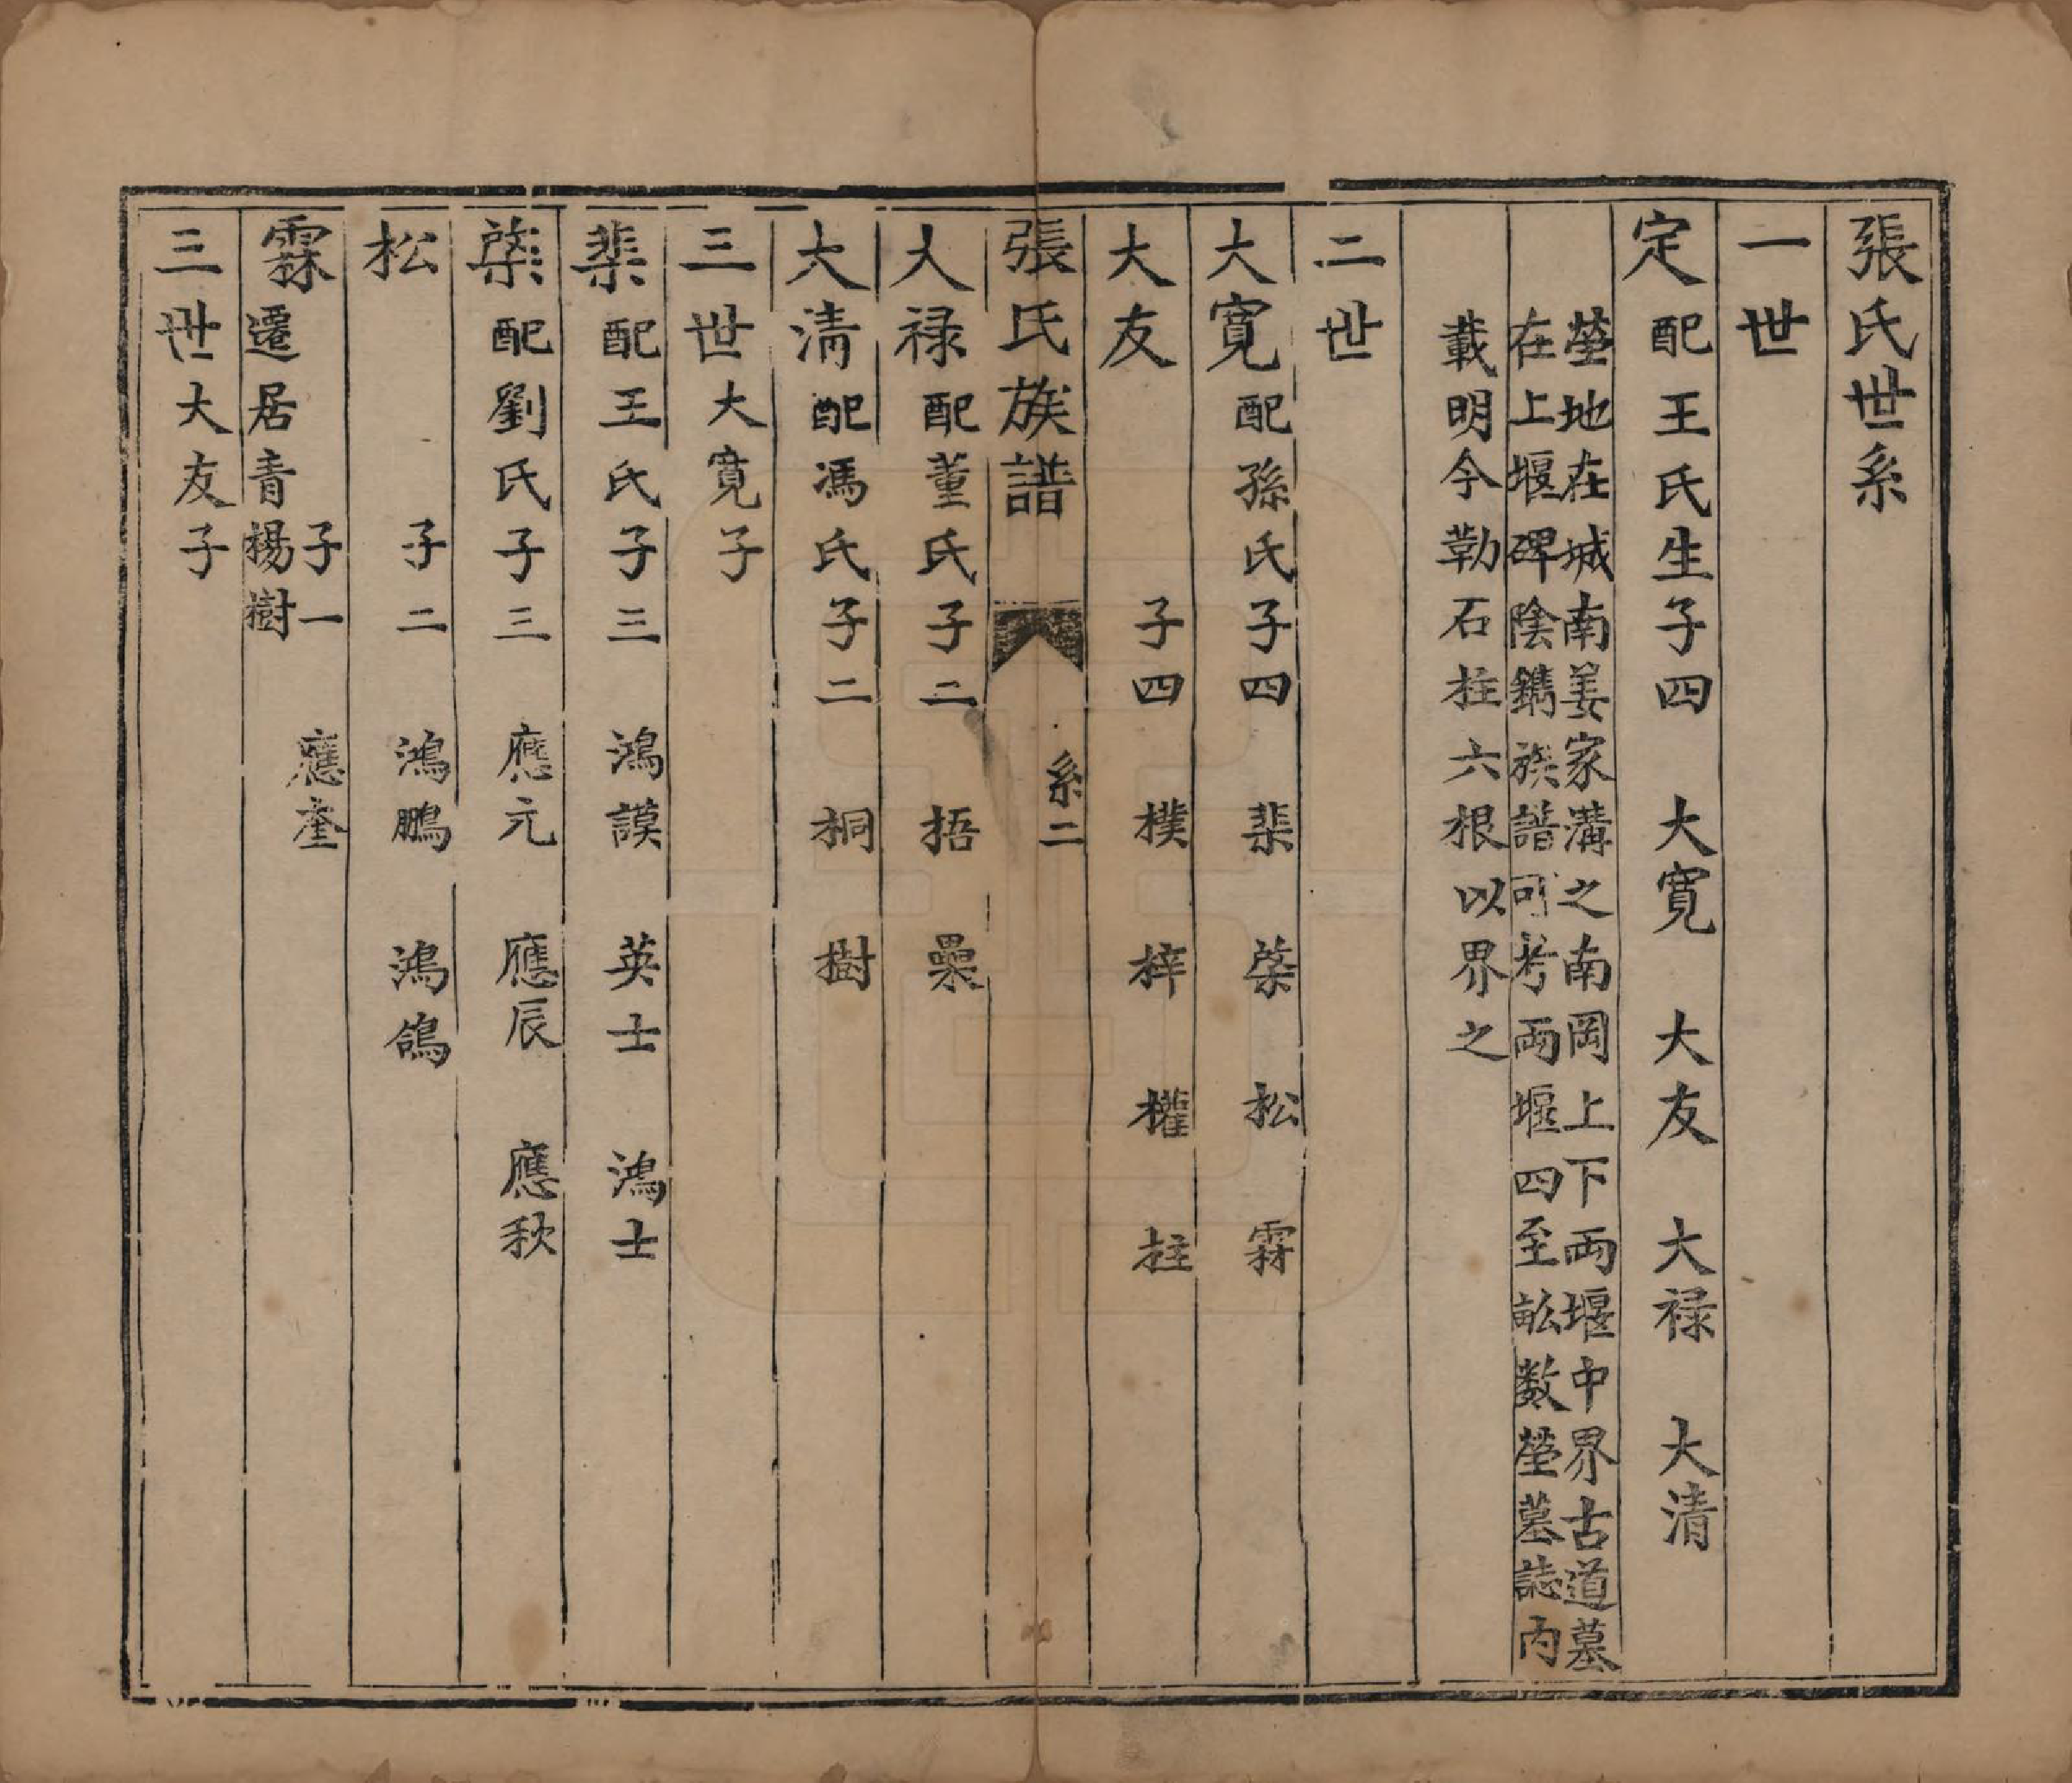 張氏世系
一世
定配王氏生子四 大寛 大友 大禄 大清
塋地在城南姜家溝之南岡上下兩堰中界古道墓
在上堰碑陰鐫族譜可考兩堰四至畝数塋墓誌內
載明今勒石柱六根以界之
二世
大寛配孫氏子四 棐 棨 松 霖
大友 子四 樸 梓 權 柱
張氏族譜 系二
大禄配董氏子二 梧
大清配馮氏子二 桐 樹
三世大寛子
棐配王氏子三 鴻謨 英士 鴻士
棨配劉氏子三 應元 應辰 應秋
松 子二 鴻鵬 鴻鵮
霖遷居青楊樹 子一 應奎
三世大友子